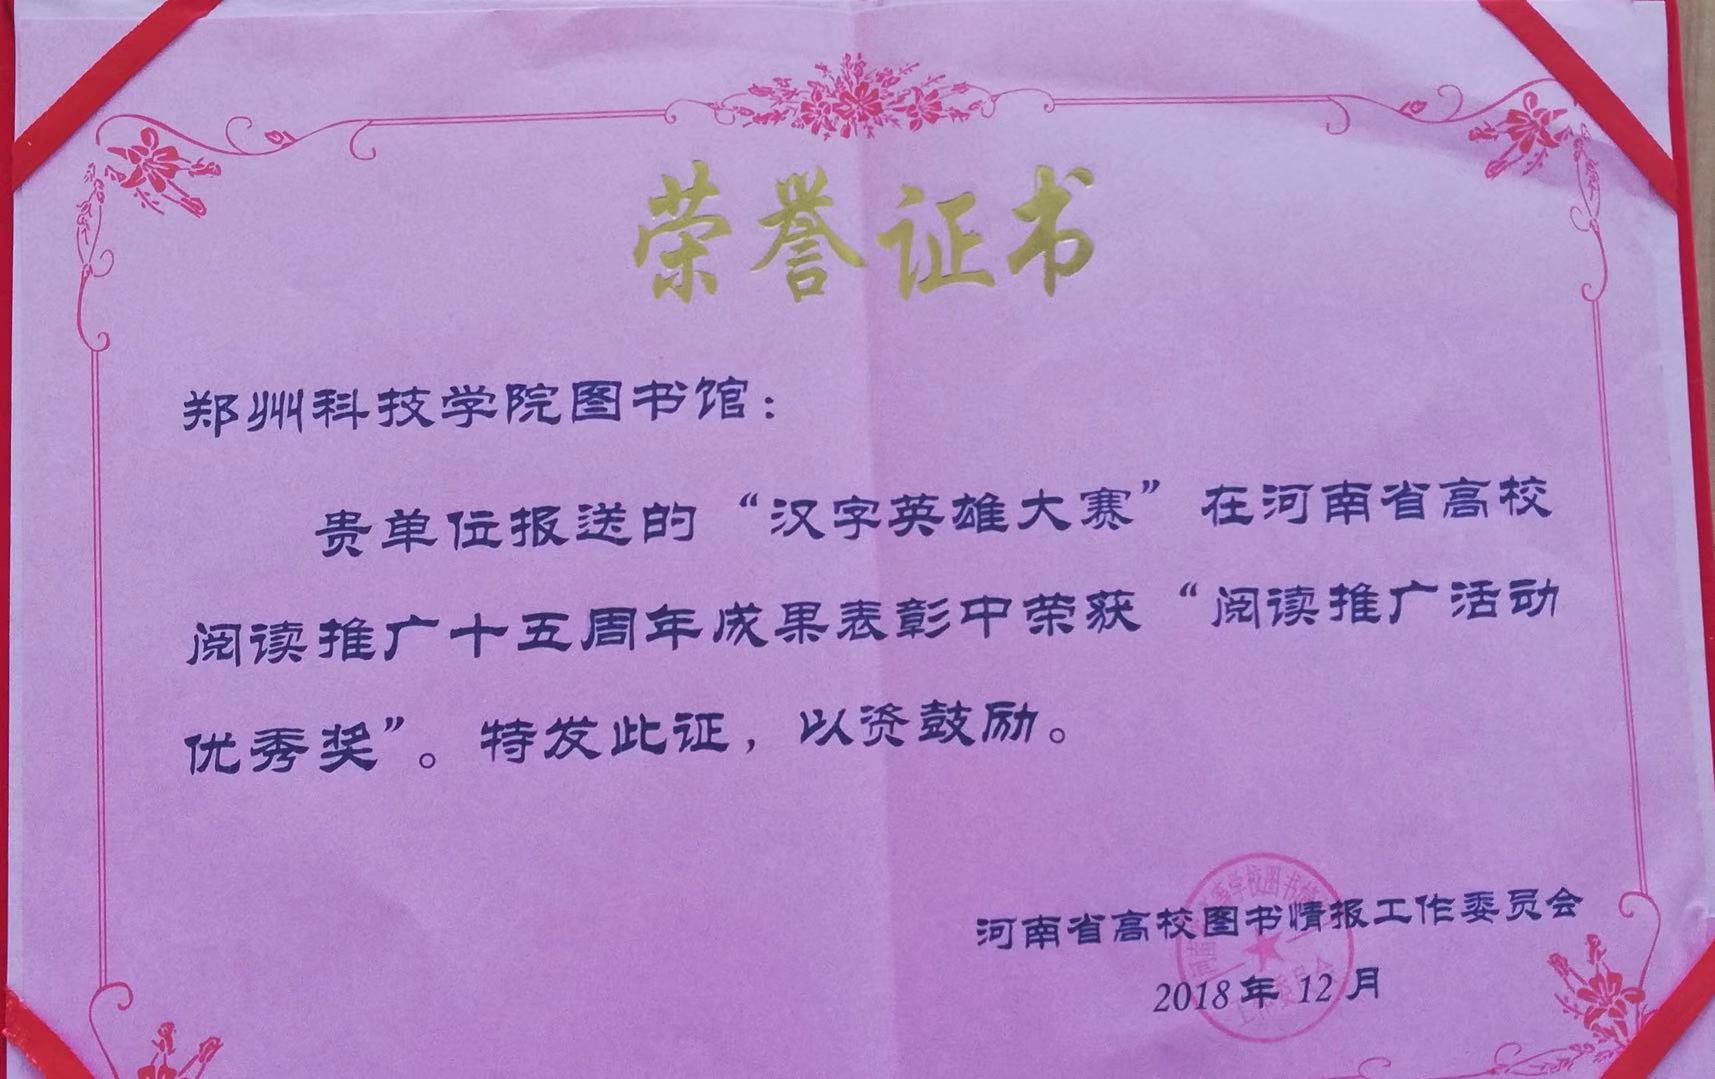 荣誉证书
郑州科技学院图书馆：
贵单位报送的“汉字英雄大赛”在河南省高校
阅读推广十五周年成果表彰中荣获“阅读推广活动
优秀奖”。特发此证，以资鼓励。
河南省高校图书情报工作委员会
2018年12月